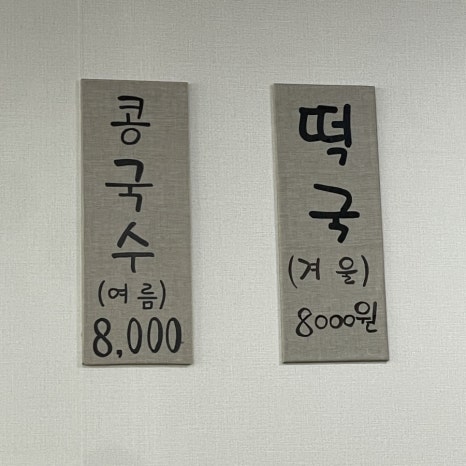 콩
국
수
(여름)
8,000
떡
국
(겨울)
8000원